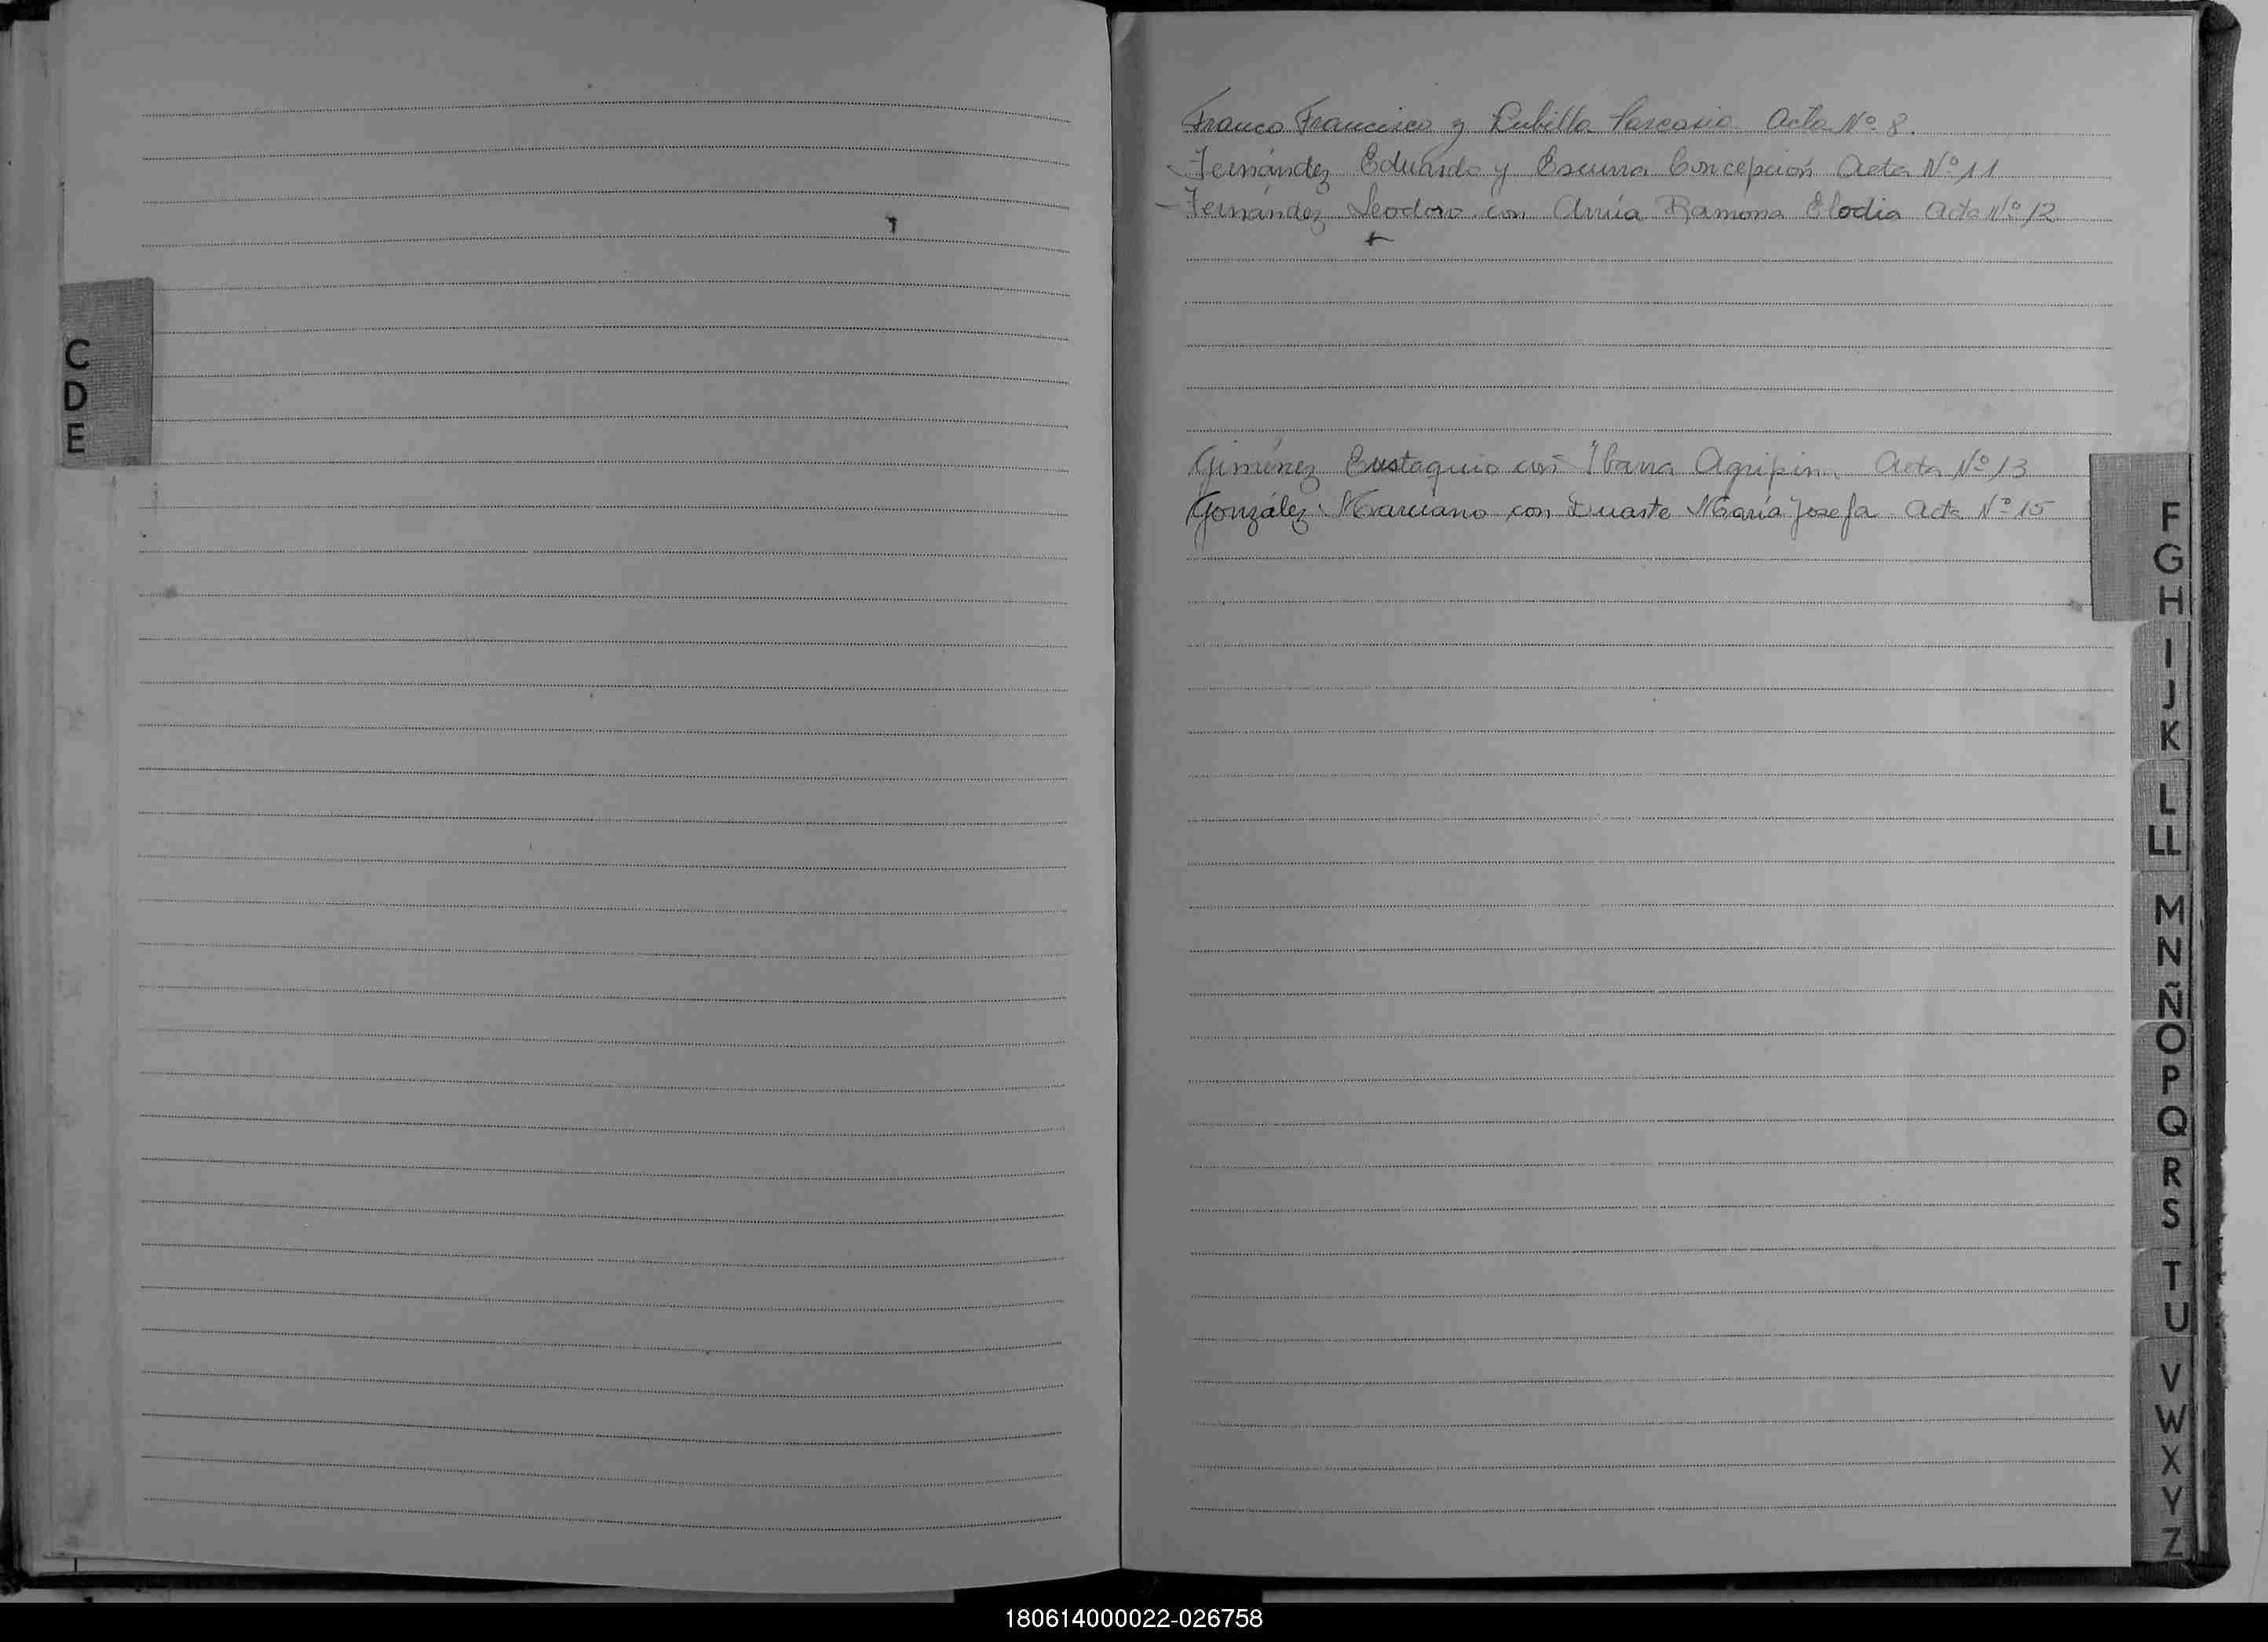 C
D
E
Franco Francisco y Rubilla Pascasia Acta Nº 8.
- Fernández Eduardo y Escurra Concepción Acta Nº 11
- Fernández Leodoro con Arrúa Ramona Elodia Acta Nº 12
Giménez Eustaquio con Ibarra Agripina Acta Nº 13
González Marciano con Duarte María Josefa Acta Nº 15
F
G
H
I
J
K
L
LL
M
N
Ñ
O
P
Q
R
S
T
U
V
W
X
Y
Z
180614000022-026758